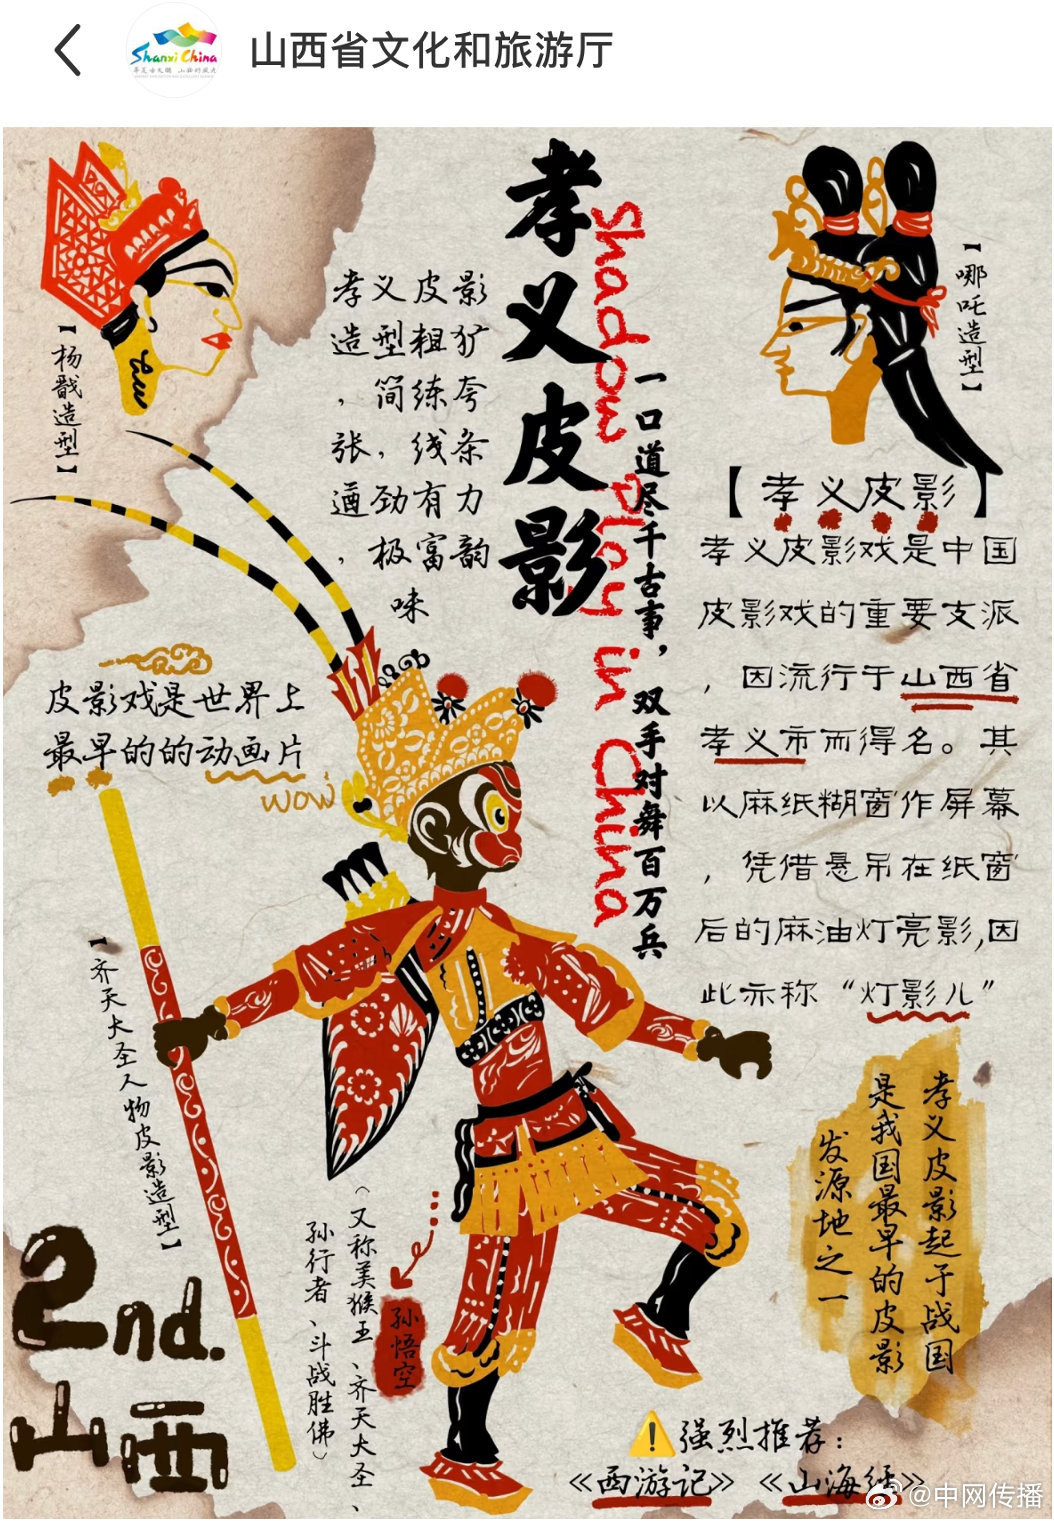 山西省文化和旅游厅
Shanxi China
孝义皮影
Shadow Play in China
一口道尽千古事，双手对舞百万兵
孝义皮影
造型粗犷
，简练夸
张，线条
遒劲有力
，极富韵
味
【杨戬造型】
【哪吒造型】
【孝义皮影】
孝义皮影戏是中国
皮影戏的重要支派
，因流行于山西省
孝义市而得名。其
以麻纸糊窗作屏幕
，凭借悬吊在纸窗
后的麻油灯亮影,因
此亦称“灯影儿”
皮影戏是世界上
最早的的动画片
wow
【齐天大圣人物皮影造型】
孙悟空
（又称美猴王、齐天大圣、
孙行者、斗战胜佛）
孝义皮影起于战国
是我国最早的皮影
发源地之一
2nd.
山西
强烈推荐：
《西游记》《山海经》
@中网传播